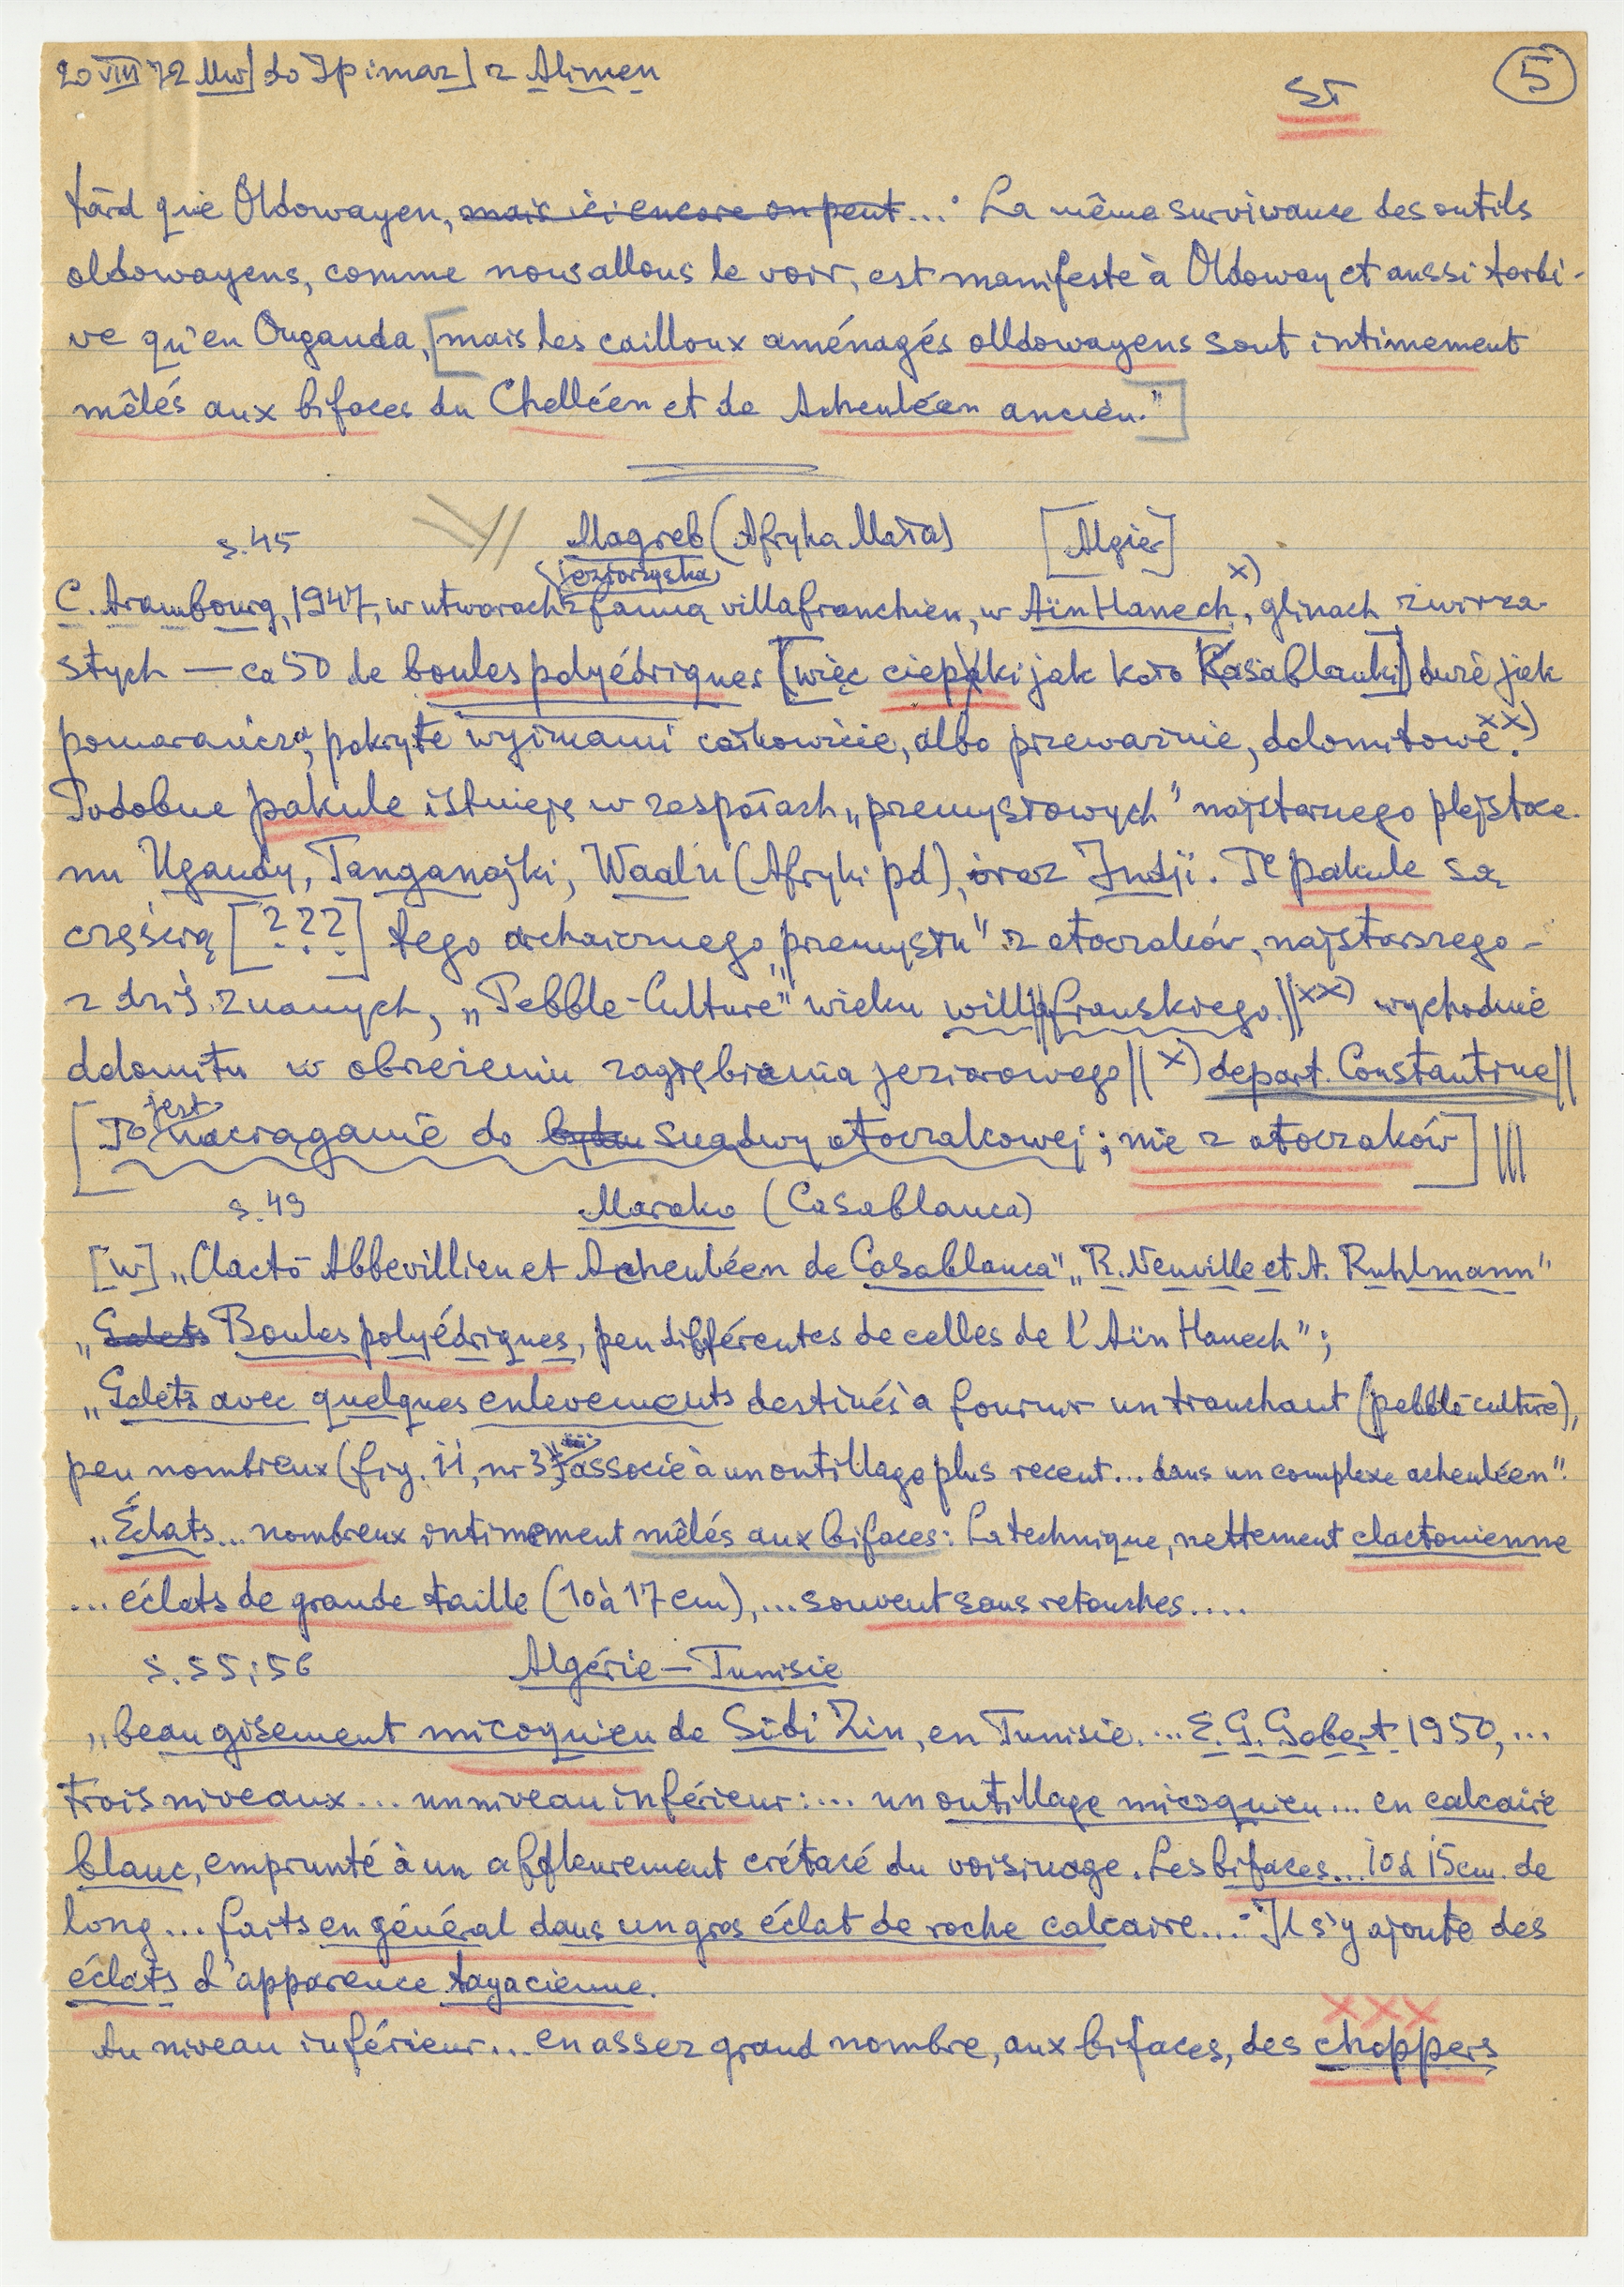 20 VIII 72 Uw] do Jpimaz] z Alimen
ST
5
tard que Oldowayen, mais ici encore on peut...: La même survivance des outils
oldowayens, comme nous allons le voir, est manifeste à Oldoway et aussi tardi-
ve qu'en Ouganda, [mais les cailloux aménagés olldowayens sont intimement
mêlés aux bifaces du Chelléen et de Acheuléen ancien."]
s.45 Magreb (Afryka Mała) [Algier]
jeziorzyska
C. Arambourg, 1947, w utworach z fauną villafranchien, w Aïn Hanech x), glinach żwirza-
stych — ca 50 de boules polyédriques [więc ciepaki jak koło Casablanki] duże jak
pomarańcza, pokryte wyjimami całkowicie, albo przeważnie, dolomitowe xx).
Podobne pakule istnieje w zespołach „przemysłowych" najstarszego plejstoce-
nu Ugandy, Tanganajki, Waal'u (Afryki pd), oraz Indji. Te pakule są
częścią [???] tego archaicznego „przemysłu" z otoczaków, najstarszego -
z dziś znanych, „Pebble-Culture" wieku willafranskiego. || xx) wychodnie
dolomitu w obrzeżeniu zagłębienia jeziorowego || x) depart. Constantine ||
[To jest naciąganie do bytu snadwy otoczakowej; nie z otoczaków] |||
s.49 Maroko (Casablanca)
[w] „Clacto-Abbevillien et Acheuléen de Casablanca" „R. Neuville et A. Ruhlmann"
„Galets Boules polyédriques, peu différentes de celles de l'Aïn Hanech";
„Galets avec quelques enlevements destinés à fournir un tranchant (pebble-culture),
peu nombreux (fig. 11, nr 3) associé à un outillage plus recent... dans un complexe acheuléen".
„Éclats... nombreux intimement mêlés aux bifaces: La technique, nettement clactonienne
... éclats de grande taille (10 à 17 cm), ... souvent sans retouches....
s. 55; 56 Algérie — Tunisie
„beau gisement micoquien de Sidi Zin, en Tunisie. ... E. G. Gobert 1950, ...
trois niveaux... un niveau inférieur: ... un outillage micoquien... en calcaire
blanc, emprunté à un affleurement crétacé du voisinage. Les bifaces... 10 à 15 cm. de
long... faits en général dans un gros éclat de roche calcaire...: Il s'y ajoute des
éclats d'apparence tayacienne.
xxx
Au niveau inférieur... en assez grand nombre, aux bifaces, des choppers